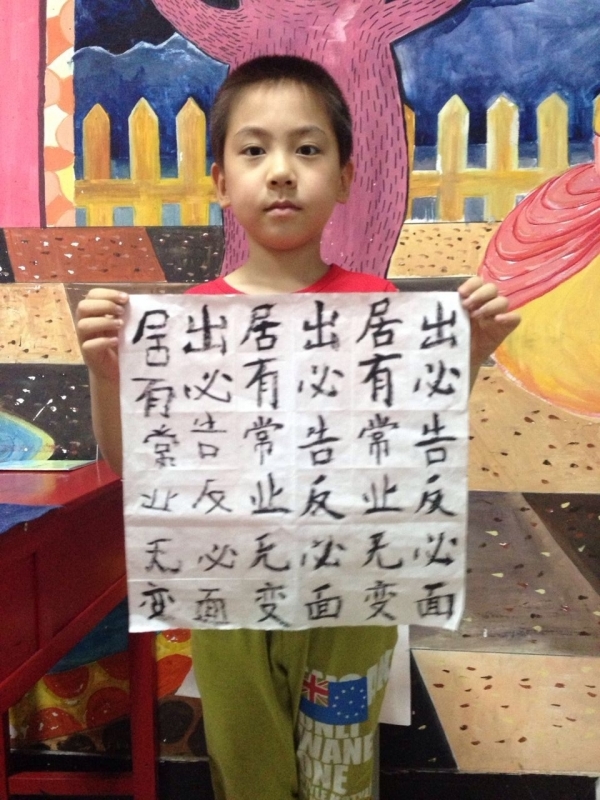 出必告反必面
居有常业无变
出必告反必面
居有常业无变
出必告反必面
居有常业无变